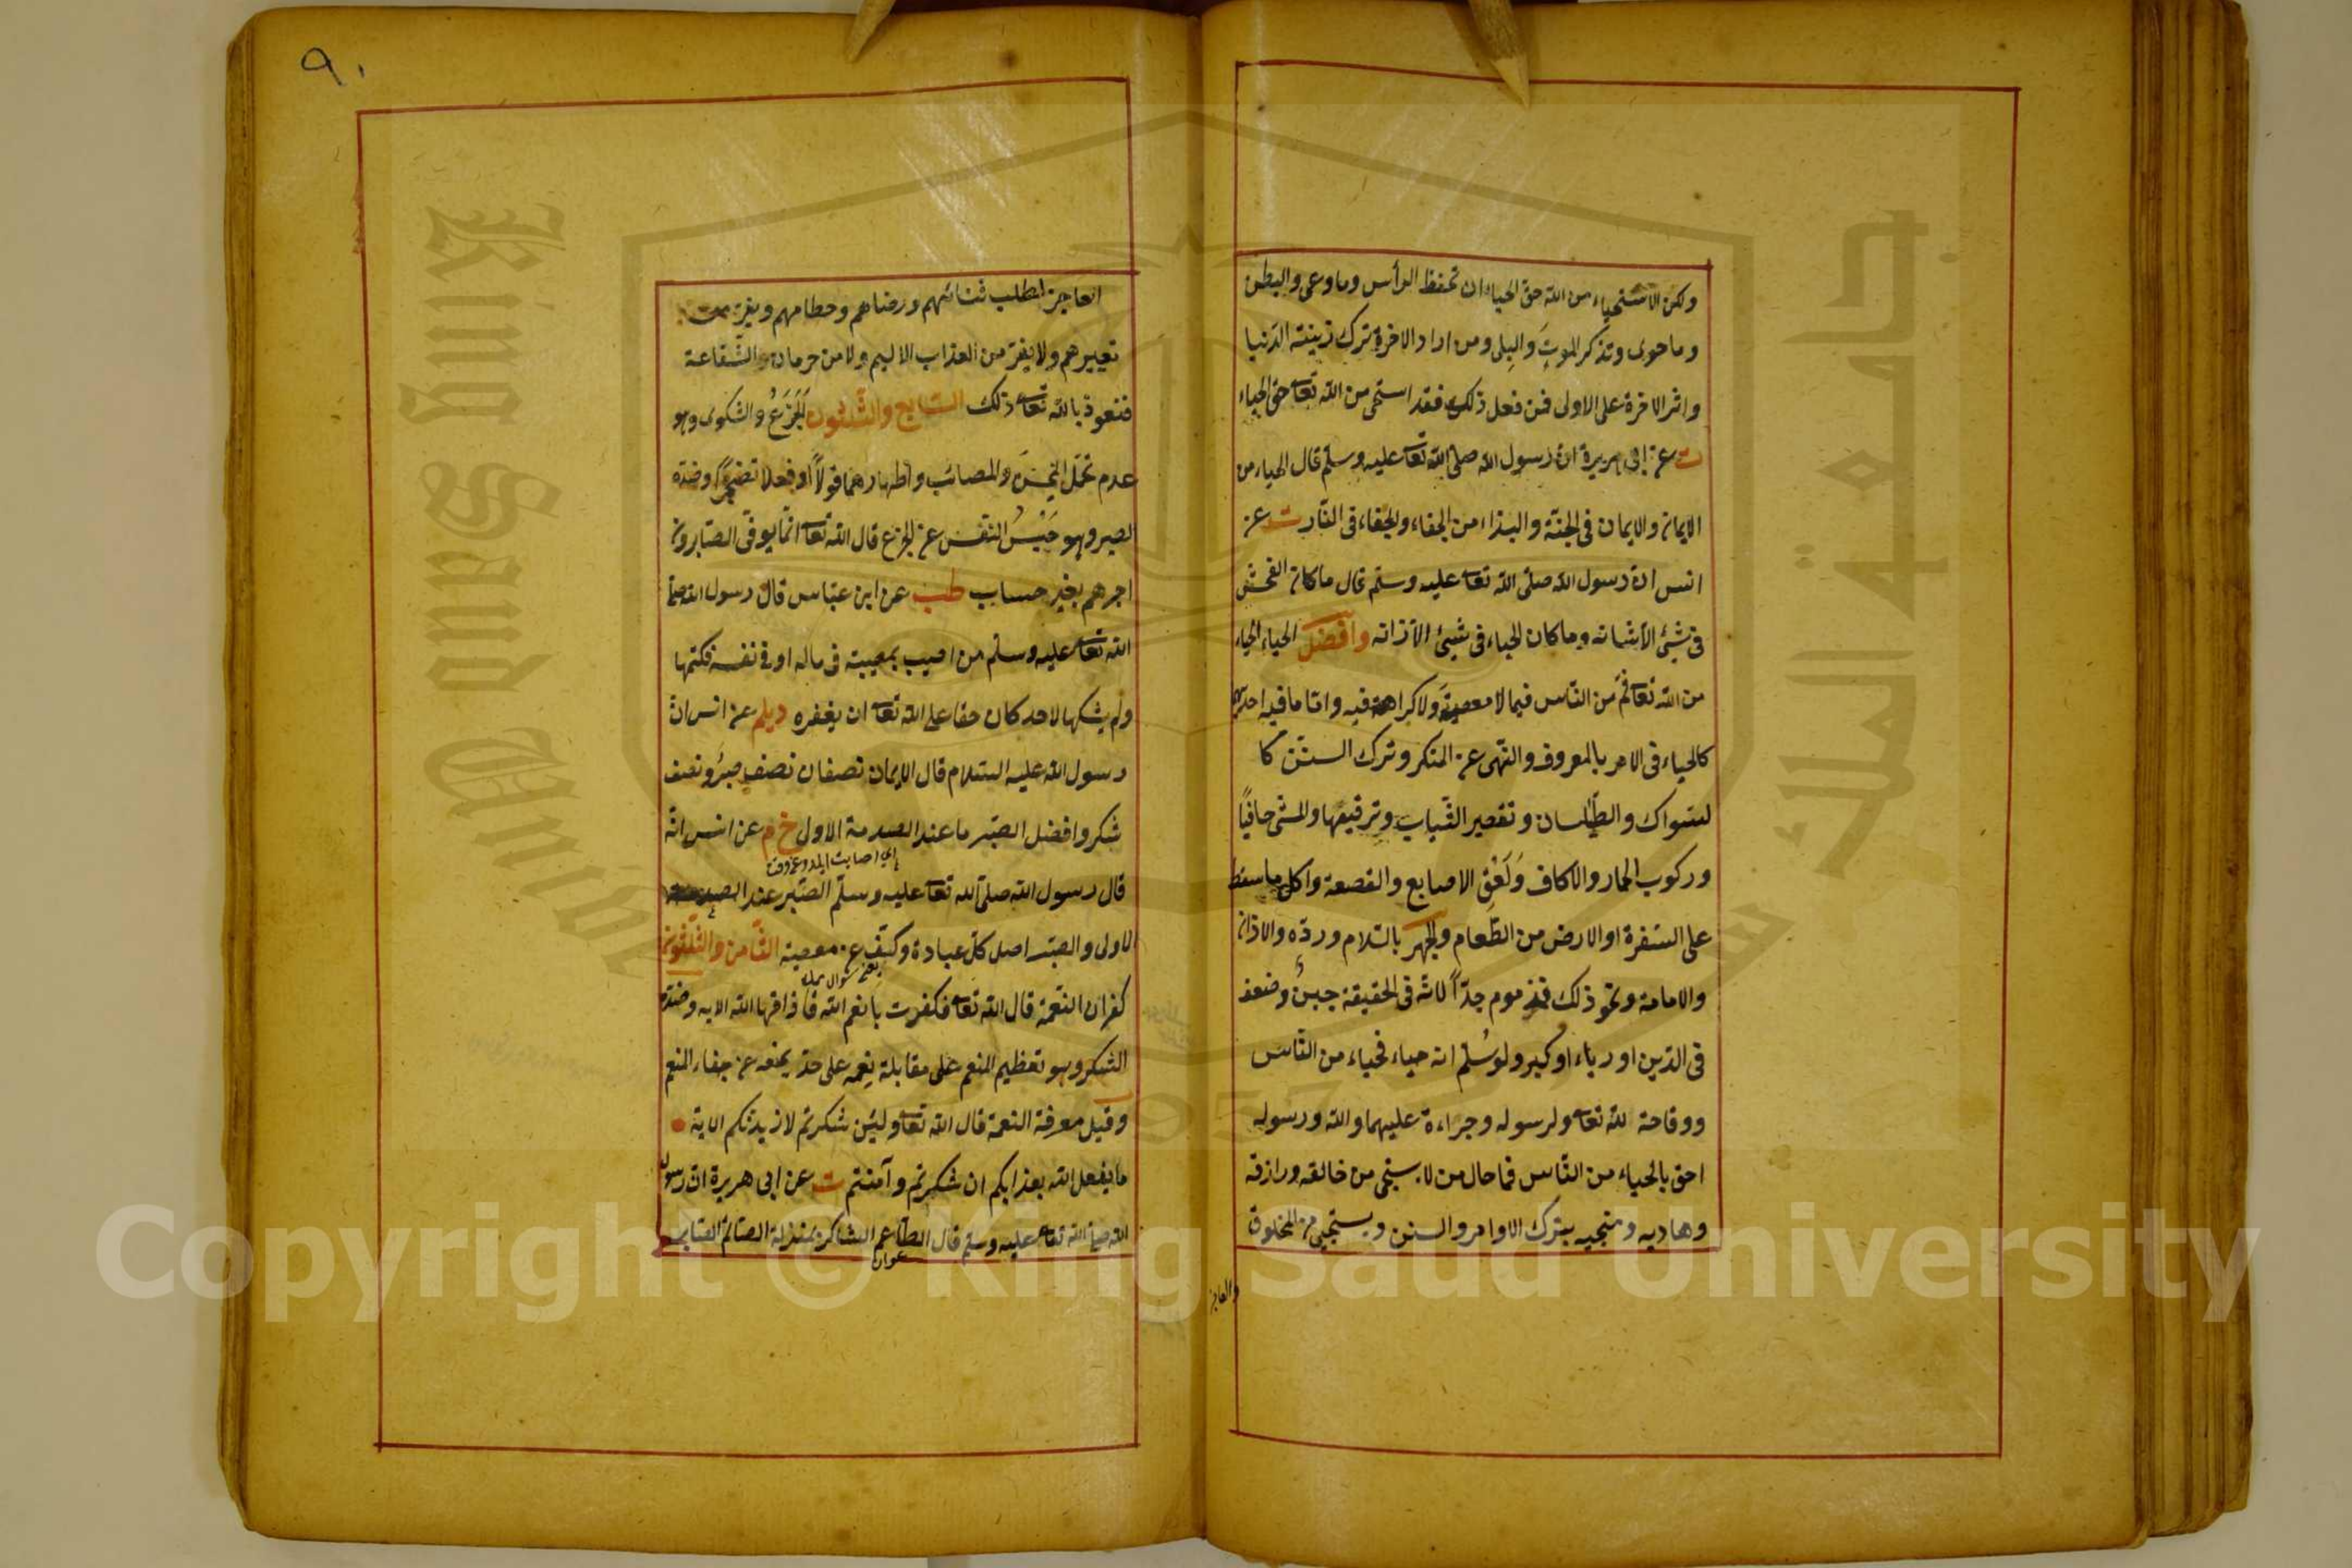 ولكن الاستحياء من الله حق الحياء ان تحفظ الرأس وما وعى والبطن
وما حوى وتذكر الموتَ والبِلى ومن اراد الاخرة ترك زينته الدنيا
واثر الاخرة على الاولى فمن فعل ذلك فقد استحى من الله تعا حق الحياء
ت عن ابى هريرة ان رسول الله صلى الله تعا عليه وسلّم قال الحياء من
الايمان والايمان فى الجنّة والبذاء من الجفاء والجفاء فى النّار ت عن
انس ان رسول الله صلّى الله تعا عليه وسلّم قال ما كان الفحش
فى شيئ الا شانه وما كان الحياء فى شيئ الا زانه وافضل الحياء الحياء
من الله تعا ثمّ من النّاس فيما لا معصية ولا كراهة فيه واما ما فيه احديهما
كالحياء فى الامر بالمعروف والنّهى عن المنكر وترك السنن كا
لسّواك والطّيلسان وتقصير الثّياب وترقيعها والمشى حافيًا
وركوب الحمار والاكاف ولَعْقِ الاصابع والقصعة واكل ما سقط
على السّفرة او الارض من الطّعام والجهر بالسّلام وردّه والاذان
والامامة ونحو ذلك فمذموم جدّاً لانّه فى الحقيقة جبنٌ وضعف
فى الدّين او رياء او كبر ولو سُلّم انه حياء فحياء من النّاس
ووقاحة لله تعا ولرسوله وجراءة عليهما والله ورسوله
احق بالحياء من النّاس فما حال من لا يستحى من خالقه ورازقه
وهاديه ومنجيه بترك الاوامر والسنن ويستحيى من المخلوق
والعاجز
٩٠
العاجز لطلب ثنائهم ورضاهم وحطامهم ويفرّ من
تعييرهم ولا يفرّ من العذاب الاليم ولا من حرمان الشّفاعة
فنعوذ بالله تعا ذلك السّابع والثّلثون الجَزَعُ والشكوى وهو
عدم تحمّل المِحَن والمصائب واظهارهما قولاً او فعلا تضجّرًا وضدّه
الصبر وهو حَبْسُ النّفس عن الجزع قال الله تعا انّما يوفّى الصّابرون
اجرهم بغير حساب طب عن ابن عبّاس قال رسول الله صلى
الله تعا عليه وسلّم من اصيب بمصيبة فى ماله او فى نفسه فكتمها
ولم يشكها لاحد كان حقا على الله تعا ان يغفره ديلم عن انس انّ
رسول الله عليه السّلام قال الايمان نصفان نصف صبرٌ ونصف
شكر وافضل الصّبر ما عند الصدمة الاول خ م عن انس انّه
قال رسول الله صلّى الله تعا عليه وسلّم الصّبر عند الصدمة
الاولى والصّبر اصل كلّ عبادة وكفّ عن معصية الثّامن والثّلثون
كفران النّعمة قال الله تعا فكفرت بانعم الله فاذاقها الله الايه وضدّه
الشكر وهو تعظيم المنعم على مقابلة نِعمه على حدّ يمنعه عن جفاء المنعم
وقيل معرفة النعمة قال الله تعا ولئن شكرتم لازيدنّكم الاية
ما يفعل الله بعذابكم ان شكرتم وآمنتم ت عن ابى هريرة ان رسول
الله صلى الله تعا عليه وسلم قال الطّاعم الشاكر بمنزلة الصّائم الصّابر
King Saud University
جامعة الملك
Copyright © King Saud University